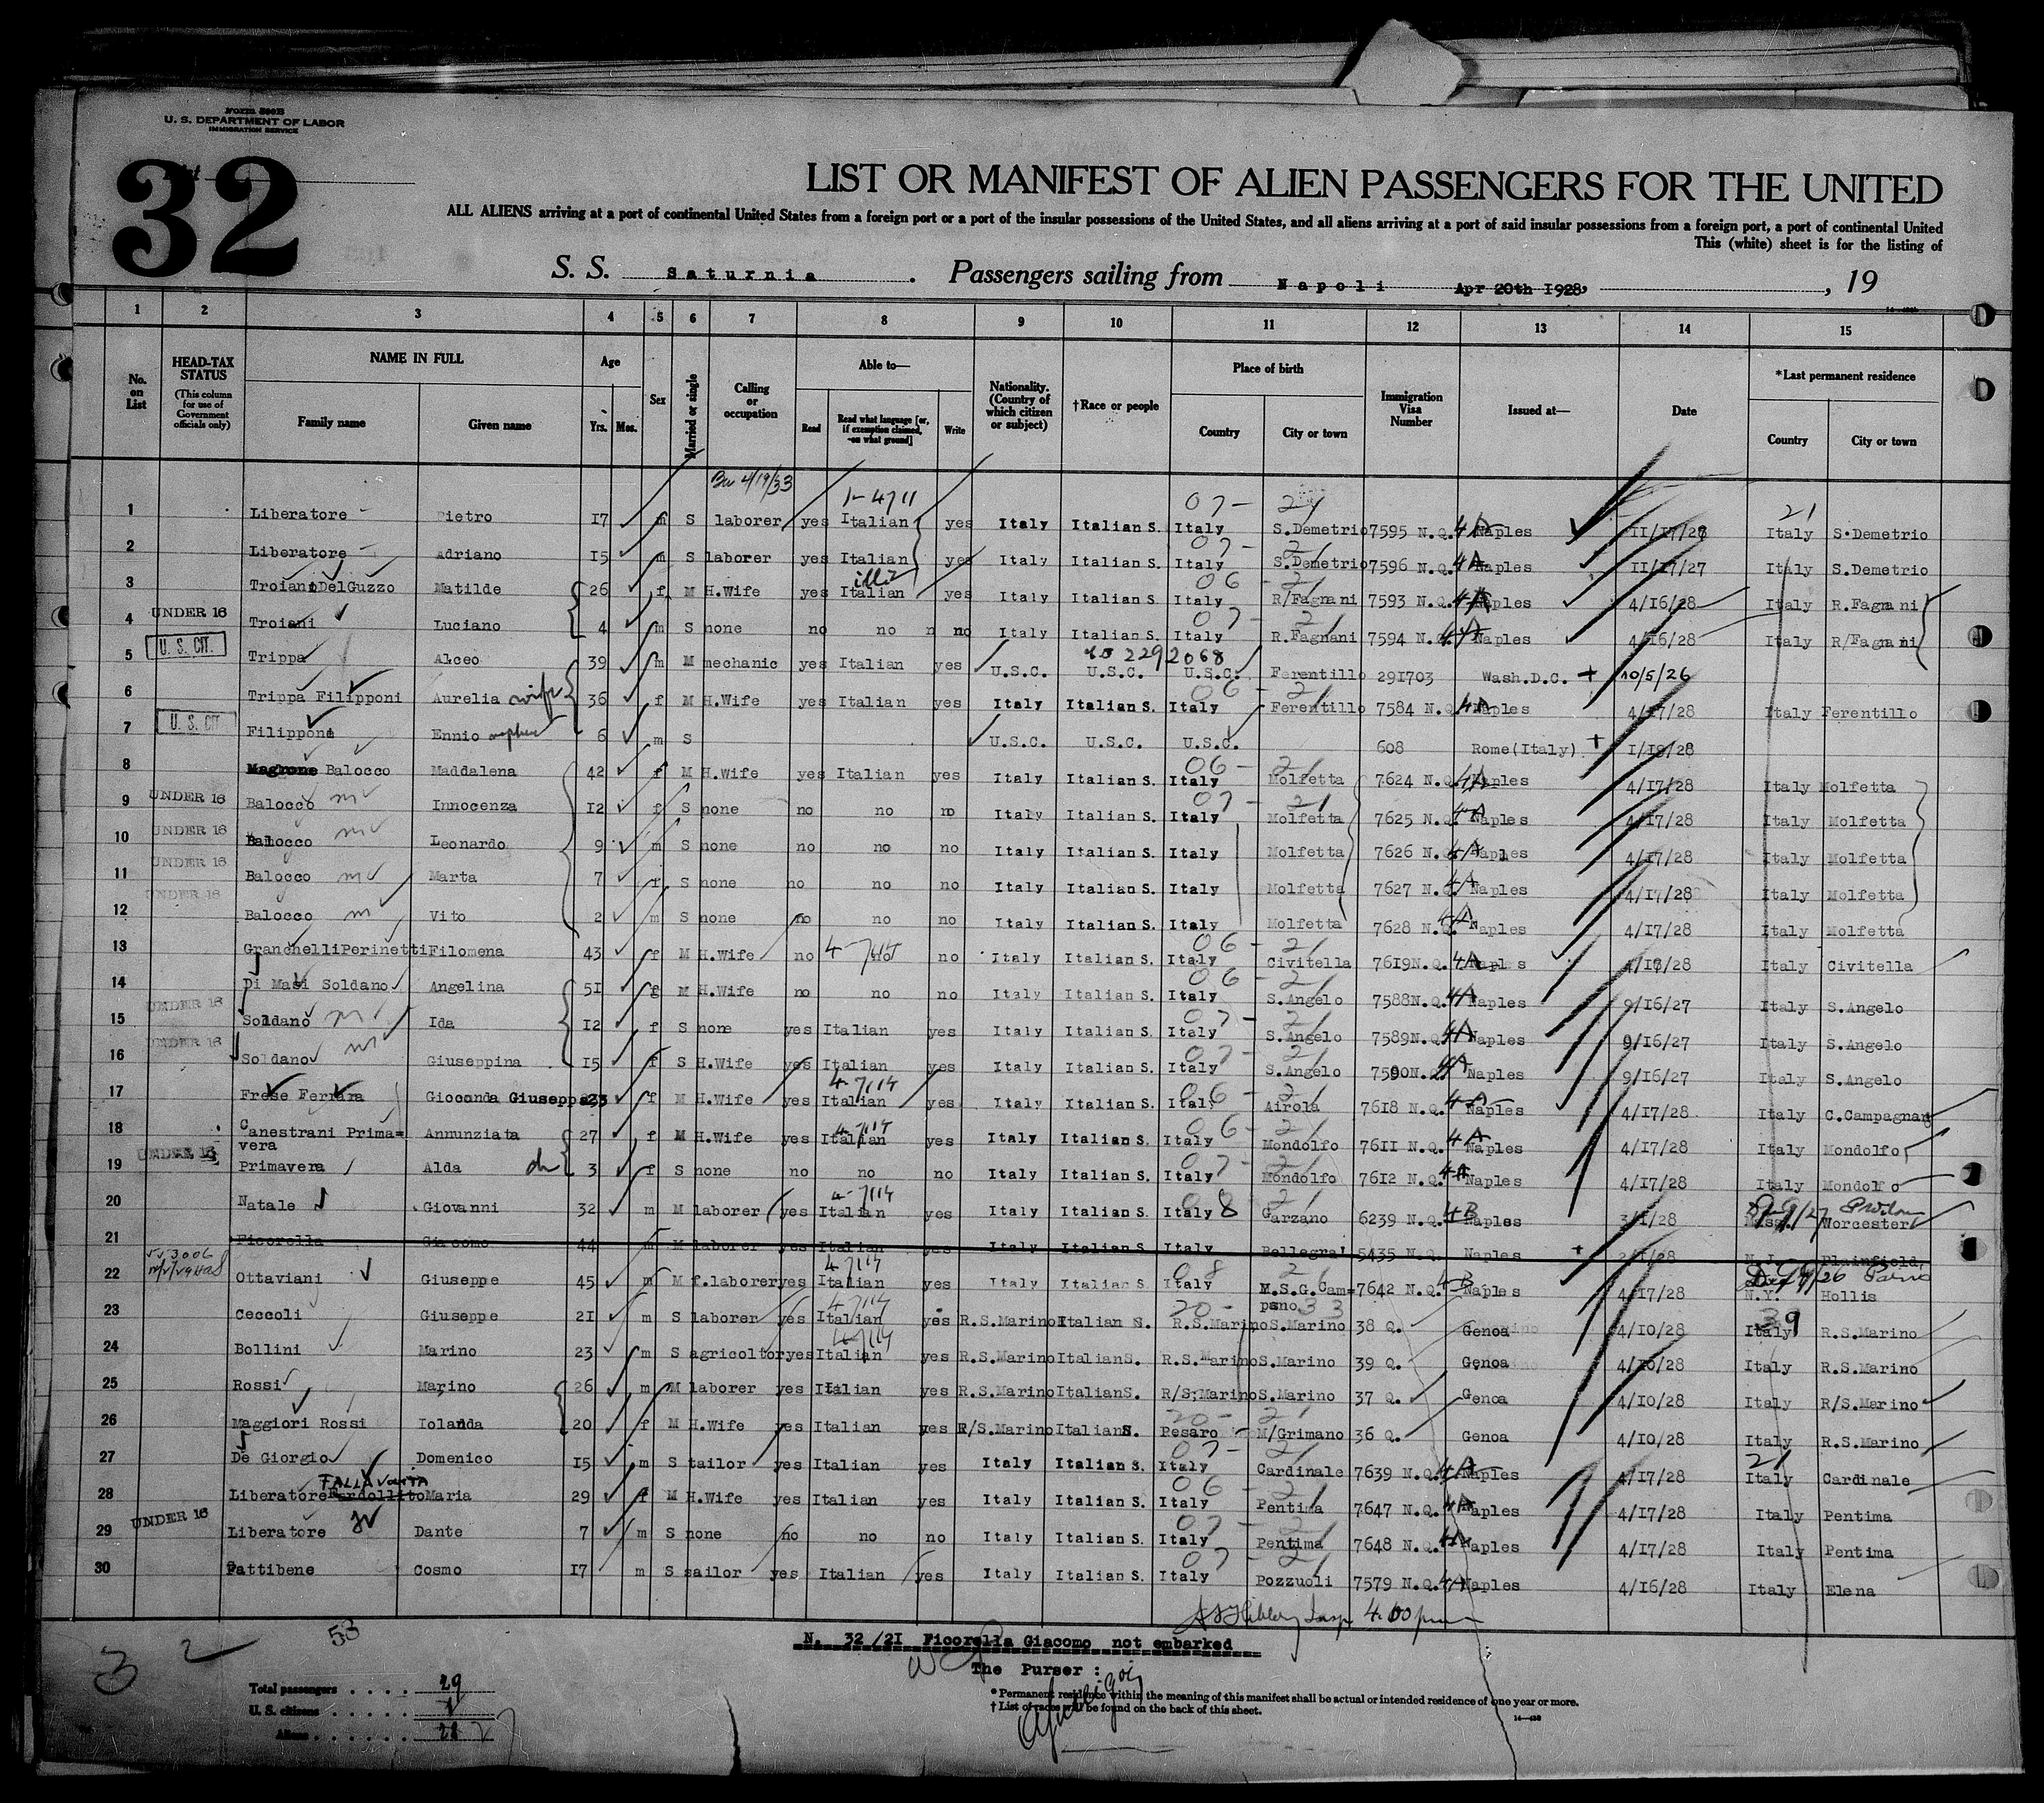 Form 500B
U. S. DEPARTMENT OF LABOR
IMMIGRATION SERVICE
32
LIST OR MANIFEST OF ALIEN PASSENGERS FOR THE UNITED
ALL ALIENS arriving at a port of continental United States from a foreign port or a port of the insular possessions of the United States, and all aliens arriving at a port of said insular possessions from a foreign port, a port of continental United
This (white) sheet is for the listing of
S. S. Saturnia . Passengers sailing from Napoli Apr 20th 1928, , 19
1 2 3 4 5 6 7 8 9 10 11 12 13 14 15
No. on List HEAD-TAX STATUS (This column for use of Government officials only) NAME IN FULL Family name Given name Age Yrs. Mos. Sex Married or single Calling or occupation Able to— Read Read what language [or, if exemption claimed, on what ground] Write Nationality. (Country of which citizen or subject) †Race or people Place of birth Country City or town Immigration Visa Number Issued at— Date *Last permanent residence Country City or town
4/19/33
1 Liberatore Pietro 17 m S laborer yes Italian yes Italy Italian S. Italy S.Demetrio 7595 N.Q. 4A Naples 11/17/28 Italy S.Demetrio
2 Liberatore Adriano 15 m S laborer yes Italian yes Italy Italian S. Italy S.Demetrio 7596 N.Q. 4A Naples 11/17/27 Italy S.Demetrio
3 Troiano DelGuzzo Matilde 26 f M H.Wife yes Italian yes Italy Italian S. Italy R/Fagnani 7593 N.Q. 4A Naples 4/16/28 Italy R.Fagnani
4 UNDER 16 Troiani Luciano 4 m S none no no no Italy Italian S. Italy R.Fagnani 7594 N.Q. 4A Naples 4/16/28 Italy R/Fagnani
5 U. S. CIT. Trippa Alceo 39 m M mechanic yes Italian yes U.S.C. U.S.C. U.S.C. Ferentillo 291703 Wash.D.C. + 10/5/26
6 Trippa Filipponi Aurelia wife 36 f M H.Wife yes Italian yes Italy Italian S. Italy Ferentillo 7584 N.Q. 4A Naples 4/17/28 Italy Ferentillo
7 U. S. CIT Filippone Ennio nephew 6 m S U.S.C. U.S.C. U.S.C. 608 Rome(Italy) + 1/18/28
8 Magrone Balocco Maddalena 42 f M H.Wife yes Italian yes Italy Italian S. Italy Molfetta 7624 N.Q. 4A Naples 4/17/28 Italy Molfetta
9 UNDER 16 Balocco Innocenza 12 f S none no no no Italy Italian S. Italy Molfetta 7625 N.Q. 4A Naples 4/17/28 Italy Molfetta
10 UNDER 16 Balocco Leonardo 9 m S none no no no Italy Italian S. Italy Molfetta 7626 N.Q. 4A Naples 4/17/28 Italy Molfetta
11 UNDER 16 Balocco Marta 7 f S none no no no Italy Italian S. Italy Molfetta 7627 N.Q. 4A Naples 4/17/28 Italy Molfetta
12 UNDER 16 Balocco Vito 2 m S none no no no Italy Italian S. Italy Molfetta 7628 N.Q. 4A Naples 4/17/28 Italy Molfetta
13 GranchelliPerinetti Filomena 43 f M H.Wife no no no Italy Italian S. Italy Civitella 7619N.Q. 4A Naples 4/18/28 Italy Civitella
14 Di Masi Soldano Angelina 51 f M H.Wife no no no Italy Italian S. Italy S.Angelo 7588N.Q. 4A Naples 9/16/27 Italy S.Angelo
15 UNDER 16 Soldano Ida 12 f S none yes Italian yes Italy Italian S. Italy S.Angelo 7589N.Q. 4A Naples 9/16/27 Italy S.Angelo
16 UNDER 16 Soldano Giuseppina 15 f S H.Wife yes Italian yes Italy Italian S. Italy S.Angelo 7590N.Q. 4A Naples 9/16/27 Italy S.Angelo
17 Frese Ferrara Gioconda Giuseppa 23 f M H.Wife yes Italian yes Italy Italian S. Italy Airola 7618 N.Q. 4A Naples 4/17/28 Italy C.Campagnan
18 Canestrani Prima=vera Annunziata 27 f M H.Wife yes Italian yes Italy Italian S. Italy Mondolfo 7611 N.Q. 4A Naples 4/17/28 Italy Mondolfo
19 UNDER 16 Primavera Alda ch 3 f S none no no no Italy Italian S. Italy Mondolfo 7612 N.Q. 4A Naples 4/17/28 Italy Mondolfo
20 Natale Giovanni 32 m M laborer yes Italian yes Italy Italian S. Italy Garzano 6239 N.Q. 4B Naples 3/1/28 Mass. Worcester
21 Ficorella Giacomo 44 m M laborer yes Italian yes Italy Italian S. Italy Pellegra! 5435 N.Q. Naples 2/1/28 N.J. Plainfield,
22 Ottaviani Giuseppe 45 m M f.laborer yes Italian yes Italy Italian S. Italy M.S.G.Cam=pano 7642 N.Q. 4B Naples 4/17/28 N.Y. Hollis
23 Ceccoli Giuseppe 21 m S laborer yes Italian yes R.S.Marino Italian N. R.S.Marino S.Marino 38 Q. Genoa 4/10/28 Italy R.S.Marino
24 Bollini Marino 23 m S agricoltor yes Italian yes R.S.Marino ItalianS. R.S.Marino S.Marino 39 Q. Genoa 4/10/28 Italy R.S.Marino
25 Rossi Marino 26 m M laborer yes Italian yes R.S.Marino ItalianS. R/S.Marino S.Marino 37 Q. Genoa 4/10/28 Italy R/S.Marino
26 Maggiori Rossi Iolanda 20 f M H.Wife yes Italian yes R/S.Marino ItalianS. Pesaro M/Grimano 36 Q. Genoa 4/10/28 Italy R.S.Marino
27 De Giorgio Domenico 15 m S tailor yes Italian yes Italy Italian S. Italy Cardinale 7639 N.Q. 4A Naples 4/17/28 Italy Cardinale
28 Liberatore Maria 29 f M H.Wife yes Italian yes Italy Italian S. Italy Pentima 7647 N.Q. 4A Naples 4/17/28 Italy Pentima
29 UNDER 16 Liberatore Dante 7 m S none no no no Italy Italian S. Italy Pentima 7648 N.Q. 4A Naples 4/17/28 Italy Pentima
30 Pattibene Cosmo 17 m S sailor yes Italian yes Italy Italian S. Italy Pozzuoli 7579 N.Q. 4A Naples 4/16/28 Italy Elena
4.00 pm
N. 32/21 Ficorella Giacomo not embarked
The Purser :
32 53
Total passengers . . . . 29
U. S. citizens . . . . .
Aliens . . . . . .
* Permanent residence within the meaning of this manifest shall be actual or intended residence of one year or more.
† List of races will be found on the back of this sheet.